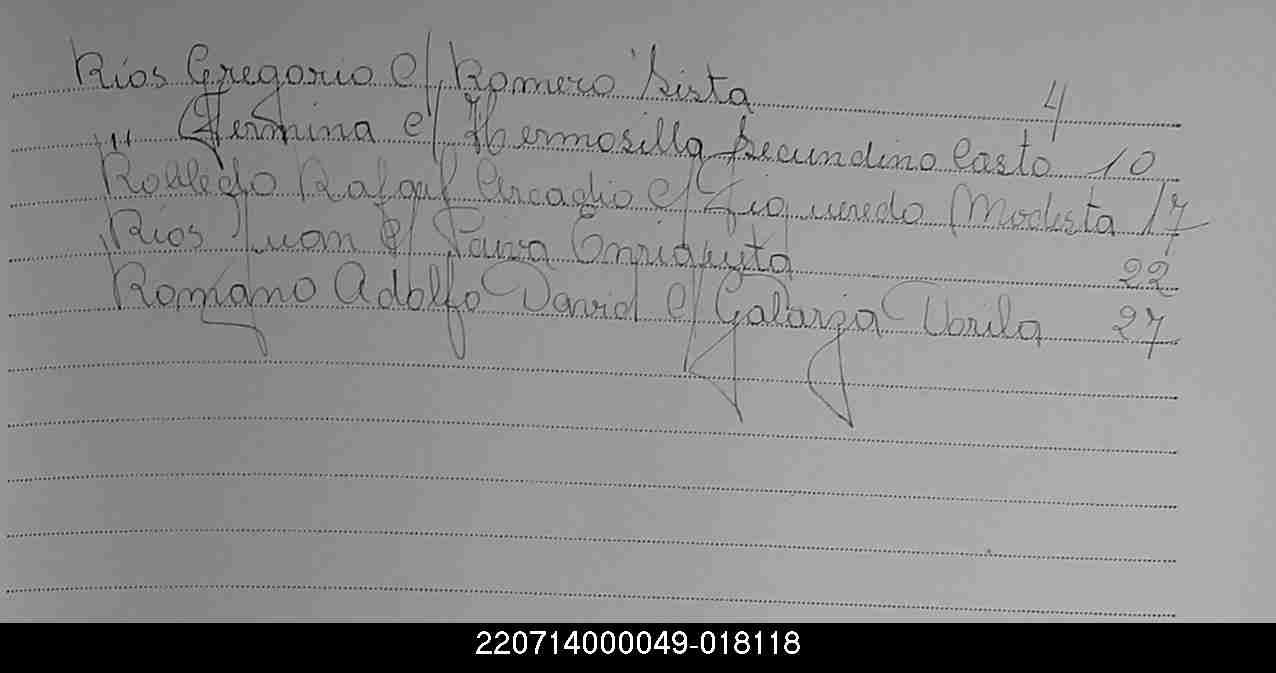 Ríos Gregorio c/ Romero Sista 4
" Fermina c/ Hermosilla Secundino Casto 10
Robledo Rafael Arcadio c/ Figueredo Modesta 17
Ríos Juan c/ Paiva Enriqueta 22
Romano Adolfo David c/ Galarza 27
220714000049-018118